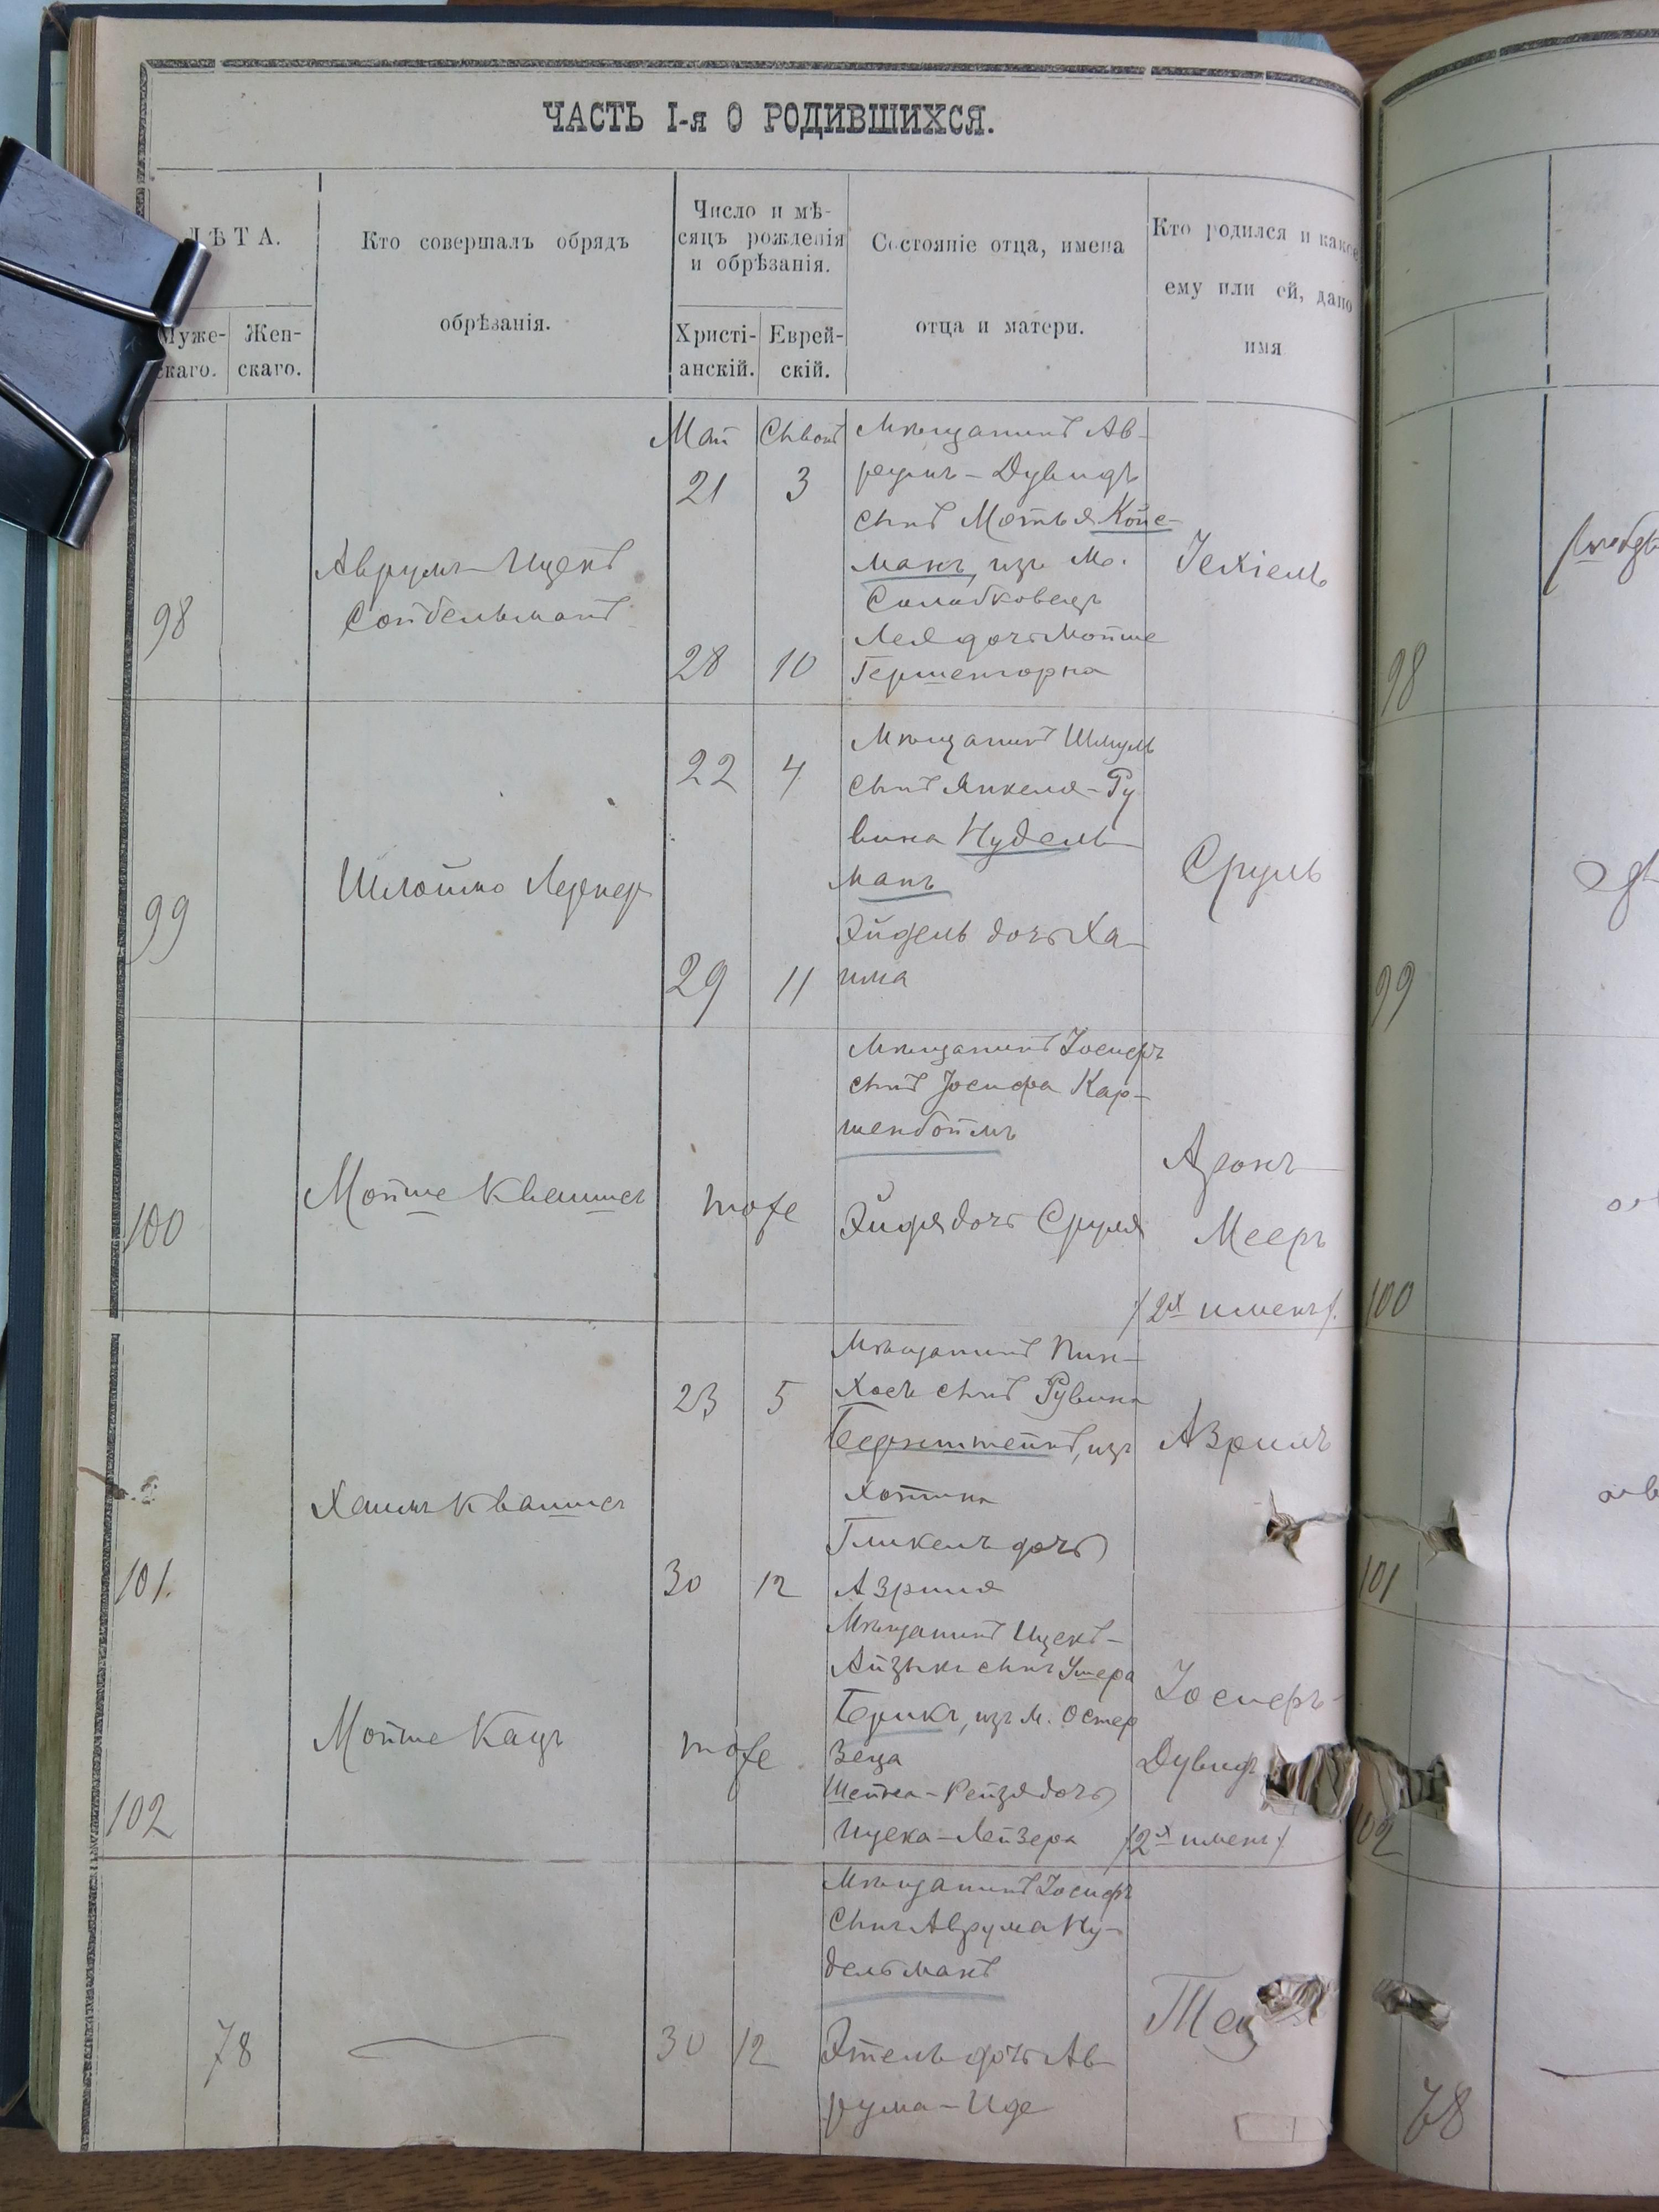 ЧАСТЬ I-я О РОДИВШИХСЯ.
ЛѢТА.
Муже-
скаго.
Жен-
скаго.
Кто совершалъ обрядъ
обрѣзанія.
Число и мѣ-
сяцъ рожденія
и обрѣзанія.
Христі-
анскій.
Еврей-
скій.
Состояніе отца, имена
отца и матери.
Кто родился и какое
ему или ей, дано
имя
98
Аврумъ-Ицекъ
Сойбельманъ
Май
21
28
3
10
Мѣщанинъ Ав-
румъ-Дувидъ
сынъ Мотья
изъ м.
Лея дочь Мойше
Гершенгорна
Іехіель
98
99
Шлоймо Лернер
22
29
4
11
Мѣщанинъ Шмуль
сынъ Янкеля-Ру
вина Нудель-
манъ
Эйдель дочь Ха-
има
Сруль
99
100
Мойше
тоже
Мѣщанинъ Іосифъ
сынъ Іосифа Кар-
шенбоймъ
дочь Сруля
Аронъ-
Мееръ
/2х именъ/.
100
101.
Хаимъ
23
30
5
12
Мѣщанинъ Пин-
хосъ сынъ Рувина
Бернштейнъ, изъ
Хотина
Гликель дочь
Азриля
Азриль
101
102
Мойше Кацъ
тоже
Мѣщанинъ Ицекъ-
Айзыкъ сынъ Ушера
изъ м. Остер
Шейва-Рейзя дочь
Ицека-Лейзера
Іосифъ-
Дувидъ
/2х именъ/
102
78
30
12
Мѣщанинъ Іосифъ
сынъ Аврума Ну-
дельманъ
Этель дочь Ав-
рума-Иде
78